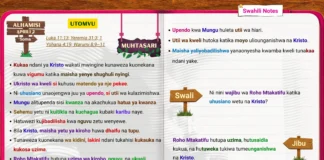 Swahili Notes
ALHAMISI
APRILI 2
UTOMVU
Luka 17:13, Yeremia 31:3
Yohana 4:19, Warumi 8:9
MUHTASARI
Kukaa ndani ya Kristo
kuwa vigumu katika maisha yenye shughuli nyingi
Ukristo wa kweli si kuhusu matendo ya nje pekee.
Ni uhusiano unaojengwa juu ya upendo, si utii wa kulazimishwa
Mungu alitupenda sisi kwanza na akachukua hatua ya kwanza
Sehemu yetu ni kuitikia na kuchagua kubaki karibu naye.
Hatuwezi kujibadilisha kwa nguvu zetu wenyewe.
Bila Kristo, maisha yetu ya kiroho huwa dhaifu na tupu
Tunaweza kuonekana wa kidini, lakini ndani tukahisi kukauka na uchovu.
Roho Mtakatifu hutupa uzima
Upendo kwa Mungu huleta utii wa hiari.
Utii wa kweli hutoka katika moyo uliounganishwa na Kristo.
Maisha yaliyobadilishwa yanaonyesha kwamba kweli tunakaa
ndani yake.
Swali
Ni nini wajibu wa Roho Mtakatifu katika
uhusiano wetu na Kristo?
Jibu
Roho Mtakatifu hutupa uzima, hutusaidia
kukua, na hutuweka tukiwa tumeunganishwa
na Kristo.